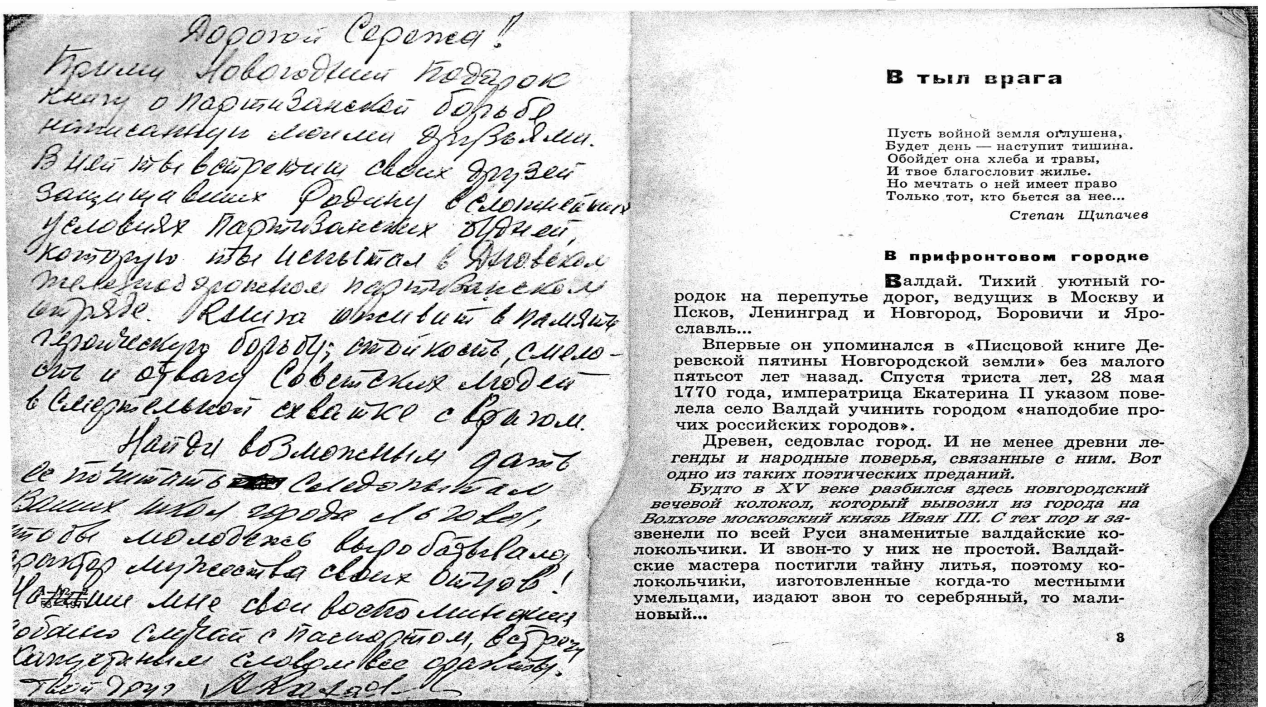 Дорогой Сережа!
Прими Новогодний Подарок
книгу о партизанской борьбе
написанную моими друзьями.
В ней ты встретиш своих друзей
защищавших Родину в сложнейших
условиях партизанских будней,
которую ты испытал в Дновском
железнодорожном партизанском
отряде. Книга оживит в память
героическую борьбу, стойкость, смело-
сть и отвагу Советских людей
в смертельной схватке с врагом.
Найди возможным дать
ее почитать следопытам
Ваших школ города Льгова,
чтобы молодежь выробатывала
характер мужества своих отцов!
мне свои воспоминания
собенно случай с паспортом, встречу
словом все
Твой друг
В тыл врага
Пусть войной земля оглушена,
Будет день — наступит тишина.
Обойдет она хлеба и травы,
И твое благословит жилье.
Но мечтать о ней имеет право
Только тот, кто бьется за нее...
Степан Щипачев
В прифронтовом городке
Валдай. Тихий уютный го-
родок на перепутье дорог, ведущих в Москву и
Псков, Ленинград и Новгород, Боровичи и Яро-
славль...
Впервые он упоминался в «Писцовой книге Де-
ревской пятины Новгородской земли» без малого
пятьсот лет назад. Спустя триста лет, 28 мая
1770 года, императрица Екатерина II указом пове-
лела село Валдай учинить городом «наподобие про-
чих российских городов».
Древен, седовлас город. И не менее древни ле-
генды и народные поверья, связанные с ним. Вот
одно из таких поэтических преданий.
Будто в XV веке разбился здесь новгородский
вечевой колокол, который вывозил из города на
Волхове московский князь Иван III. С тех пор и за-
звенели по всей Руси знаменитые валдайские ко-
локольчики. И звон-то у них не простой. Валдай-
ские мастера постигли тайну литья, поэтому ко-
локольчики, изготовленные когда-то местными
умельцами, издают звон то серебряный, то мали-
новый...
3